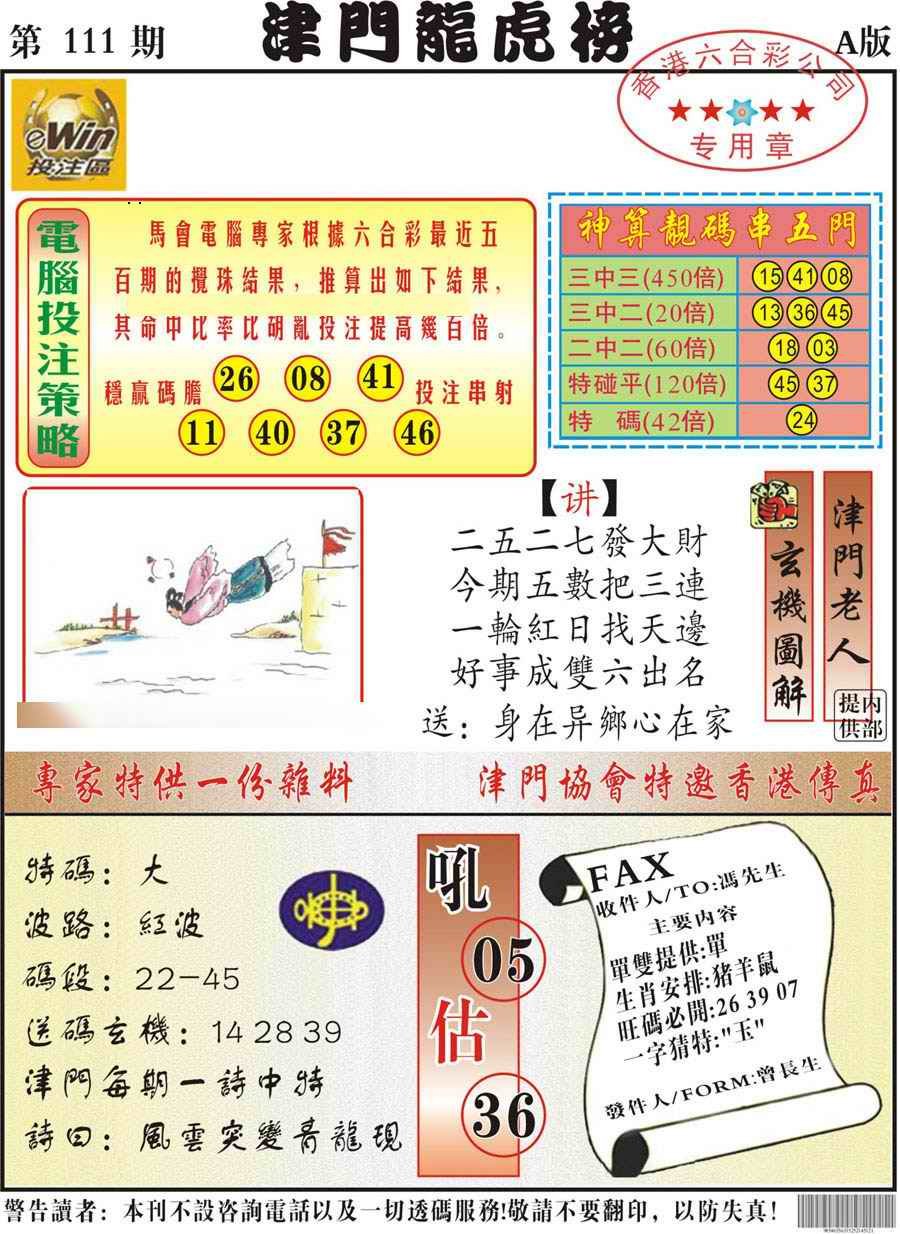 第 111 期
津門龍虎榜
A版
香港六合彩公司
专用章
eWin
投注區
電腦投注策略
馬會電腦專家根據六合彩最近五
百期的攪珠結果，推算出如下結果，
其命中比率比胡亂投注提高幾百倍。
穩贏碼膽 26 08 41 投注串射
11 40 37 46
神算靚碼串五門
三中三(450倍) 15 41 08
三中二(20倍) 13 36 45
二中二(60倍) 18 03
特碰平(120倍) 45 37
特　碼(42倍) 24
【讲】
二五二七發大財
今期五數把三連
一輪紅日找天邊
好事成雙六出名
送：身在异鄉心在家
玄機圖解
津門老人
内部提供
專家特供一份雜料
津門協會特邀香港傳真
特碼：大
波路：紅波
碼段：22—45
送碼玄機：14 28 39
津門每期一詩中特
詩曰：風雲突變青龍現
吼
05
估
36
FAX
收件人/TO:馮先生
主要内容
單雙提供:單
生肖安排:猪羊鼠
旺碼必開:26 39 07
一字猜特:"玉"
發件人/FORM:曾長生
警告讀者：本刊不設咨詢電話以及一切透碼服務!敬請不要翻印，以防失真!